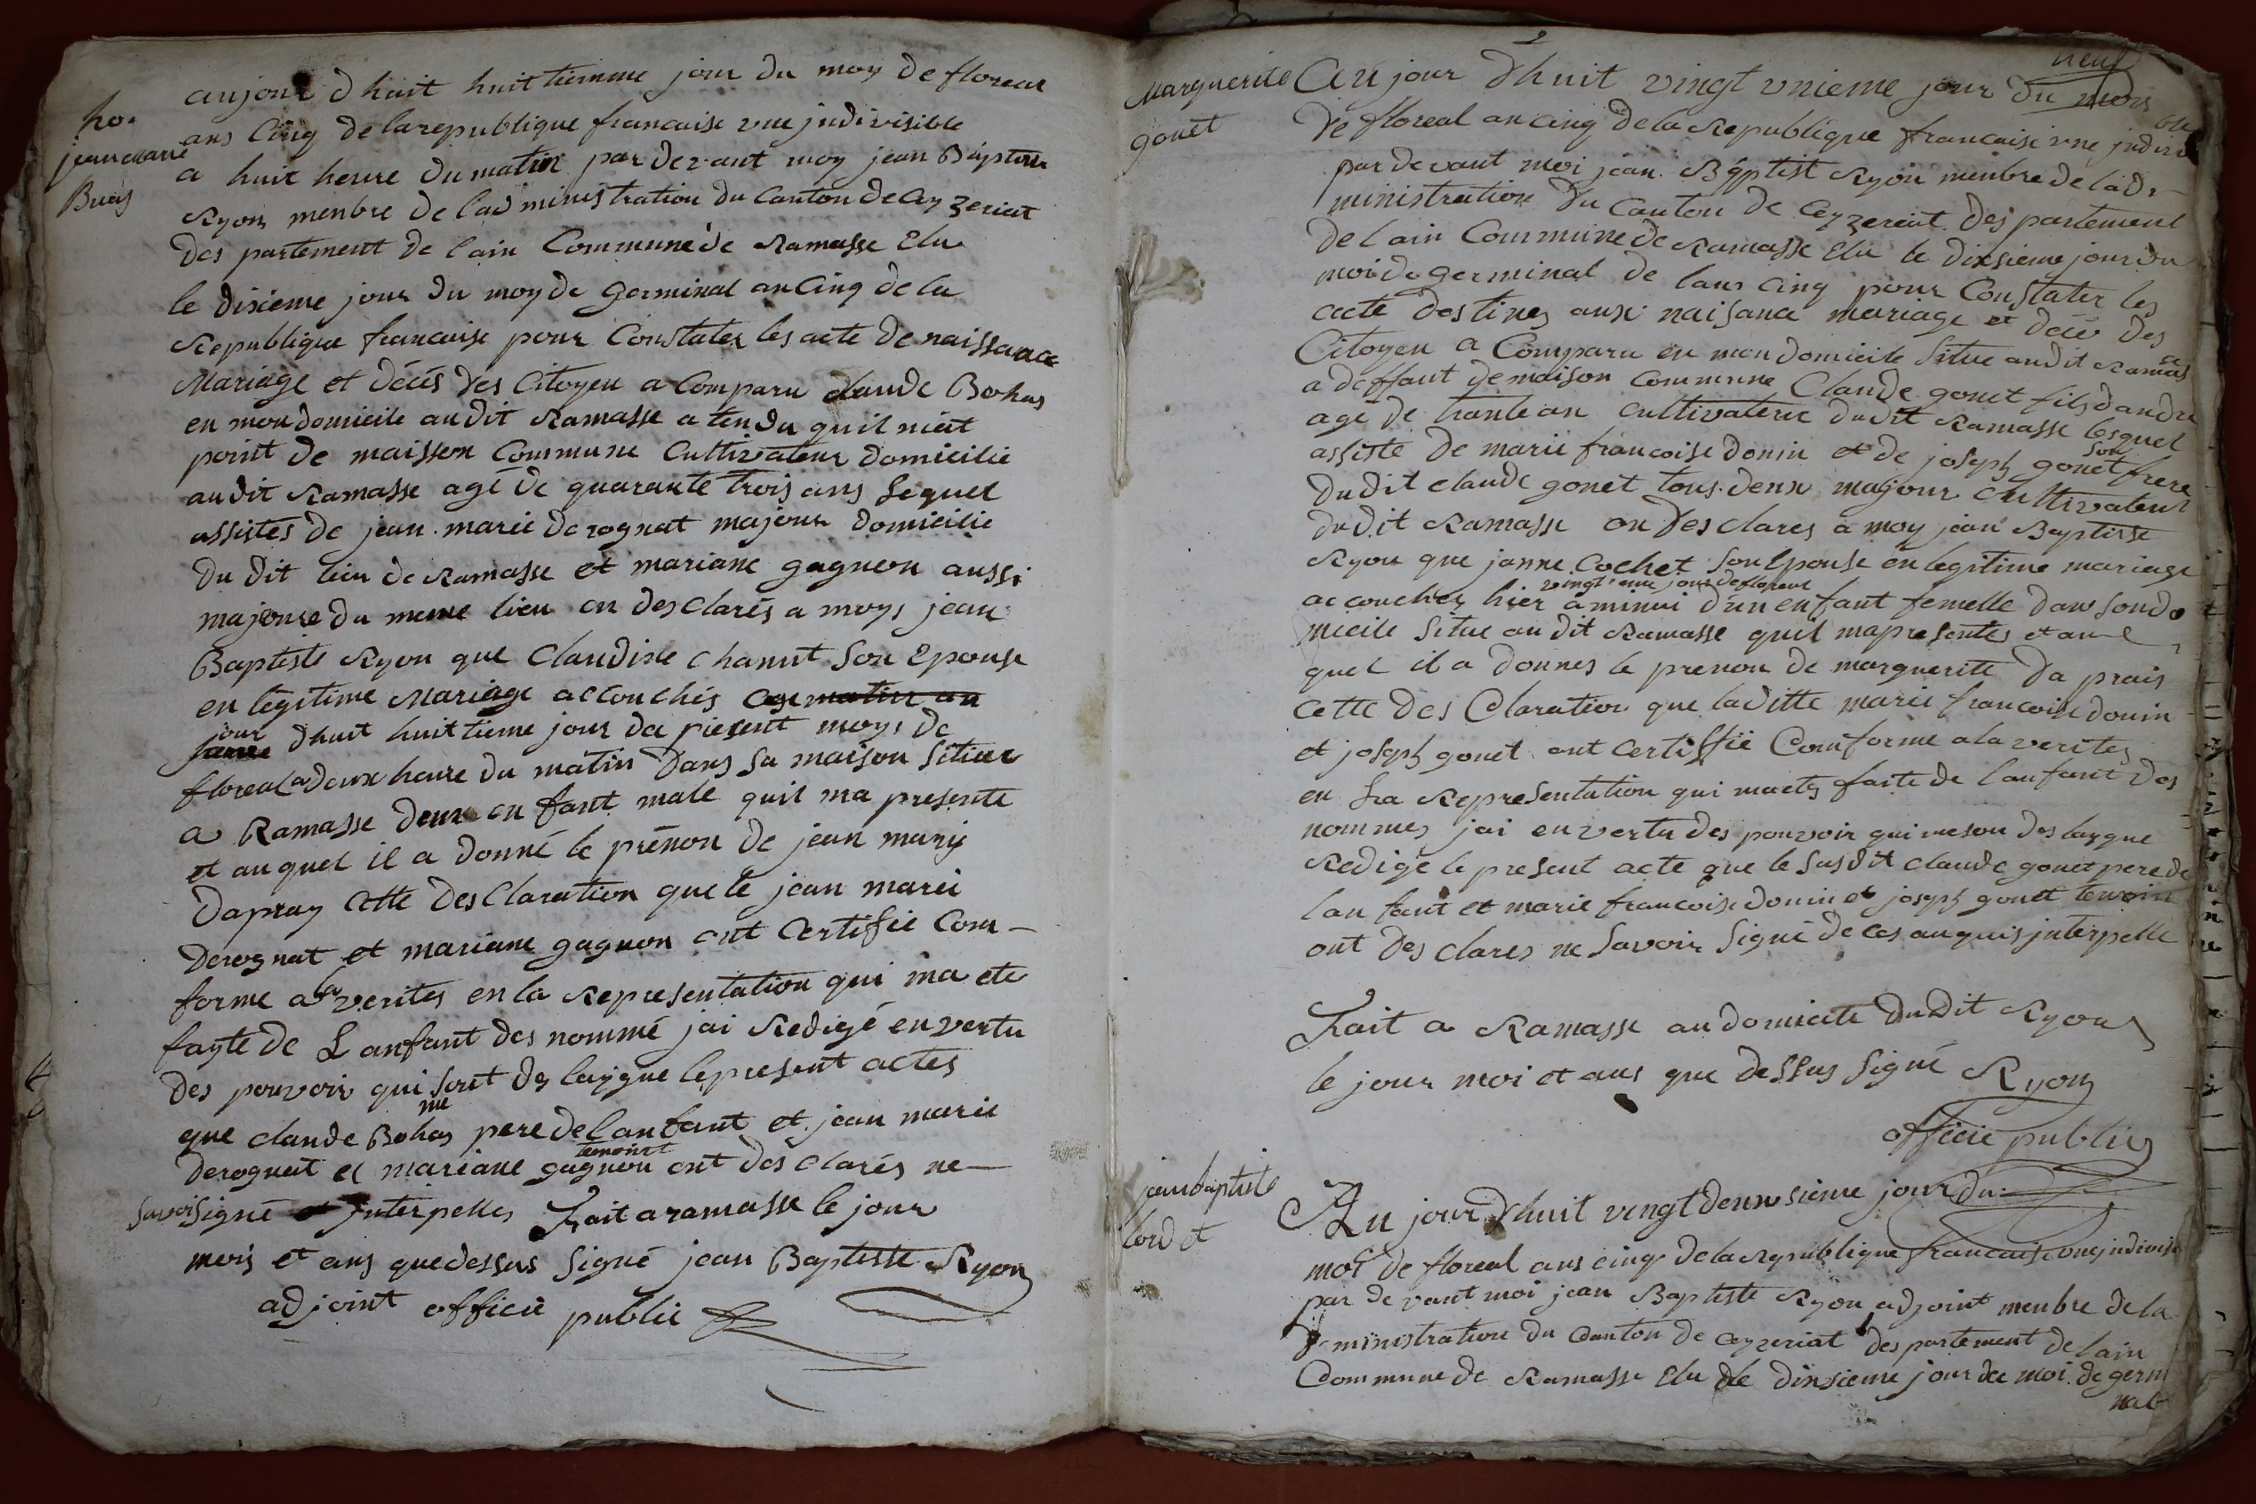 ho.
jean marie
Buas
aujour d huit huittiemme jour du moy de floreal
ans Cinq de la republique francaise vne jndivisible
a huit heure du matin par devant moy jean Baptiste
Ryon menbre de lad ministration du Canton de Ceyzeriat
des partement de l ain Commune de Ramasse Elu
le dixieme jour du moy de Germinal an Cinq de la
Republique francaise pour Constater les acte de naissance
Mariage et décés des Citoyen a Comparu claude Bohas
en mon domicile au dit Ramasse a tendu quil niat
point de maisson Commune Cultivateur domicilié
au dit Ramasse agé de quarante trois ans Lequel
assistés de jean marie derognat majour domicilie
du dit lieu de Ramasse et mariane gagneon aussi
majeure du meme lieu on desclarés a moys jean
Baptiste Ryon que Claudine Chanut Son Epouse
en legitime Mariage accouchés ce matin au
jour d huit huittieme jour du present moys de
floreal a deux heure du matin dans sa maison Situer
a Ramasse deun en fant male quil ma presente
et auquel il a donné le prénon de jean mary
dapray Cette desClaration que le jean marei
derognat et mariane gagnon ont Certifié Com-
forme a la verites en la Representation qui ma ete
fayte de L anfant des nommé jai Redigé en vertu
des pouvoir qui me sont des laygue le present actes
que claude Bohas pere de l anfant et jean marie
derognat et mariane gagneon temoint ont des clarés ne-
savoir Signé et jnterpelles Fait a ramasse le jour
mois et ans que dessus Signé jean Baptiste Ryon
adjoint officié public
neuf
Marguerite
gonet
Au jour d huit vingt vnieme jour du mois
de floreal an cinq de la Republique francaise vne jndivisi
ble
par devant moi jean Baptist Ryon menbre de lad-
ministration du Canton de Ceyzereat des partement
de l ain Commune de Ramasse Elu le dixsieme jour du
moi de germinal de lans cinq pour Constater les
acte destines aux naisance mariage et décé des
Citoyen a Comparu en mon domicile Situe au dit Ramasse
a deffaut de maison Commune Claude gonet fils dandre
age de trante an cultivateur du dit Ramasse lesquel
assiste de marie francoise donin et de joseph gonet son frere
du dit claude gonet tous deux majour cultivateur
du dit Ramasse on des clares a moy jean Baptiste
Ryon que janne Cochet Son Epouse en legitime mariage
accouches hier vingt eme jour de floreal a minui d un enfant femelle dans Son do
micile Situe au dit Ramasse quil mapresentes et au-
quel il a donnes le prenon de marguerite da prais
cette des Claration que laditte marie francoise donin
et joseph gonet ont Certiffie Comforme a la verites
en La Representation qui maetes faite de l anfant des
nommes jai en vertu des pouvoir qui me son des laygue
Redigé le present acte que le Susdit claude gonet pere de
lan fant et marie francoise donin et joseph gonet temoin
ont des clares ne Savoir Signé de ces au quis jnterpelle
Fait a Ramasse au domicile du dit Ryon
le jour moi et ans que dessus Signé Ryon
officie public
jean baptiste
Cordet
Au jour d huit vingt deuxsieme jour du
moi de floreal ans cinq de la Republique francaise une jndivisi
par devant moi jean Baptiste Ryon adjoint menbre de la
d ministration du Canton de Ceyzeriat des partement de lain
Commune de Ramasse Elu le dixsieme jour du moi de germi
nal